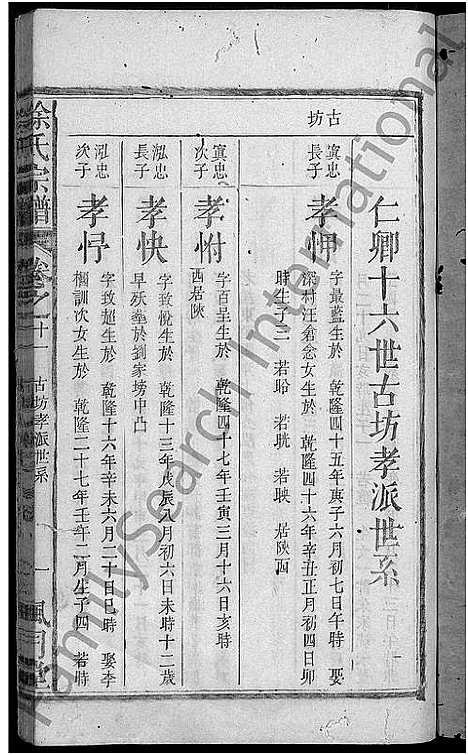 仁卿十六世古坊孝派世系
古坊
寘忠長子
孝岬
字最藍生於 乾隆四十五年庚子六月初七日午時 娶
深村汪倉忿女生於 乾隆四十六年辛丑正月初四日卯
時生子三 若盼 若晄 若映 居陝西
寘忠次子
孝咐
字百呈生於 乾隆四十七年壬寅三月十六日亥時
西居陝
泓忠長子
孝快
字致悅生於 乾隆十三年戊辰八月初六日未時十二歲
早殀塟於劉家塝中凸
泓忠次子
孝忬
字致超生於 乾隆十六年辛未六月二十日巳時 娶李
訓次女生於 乾隆二十七年壬午二月生子四 若時
徐氏宗譜
卷之十
古坊孝派世系
一
風月堂
FamilySearch International